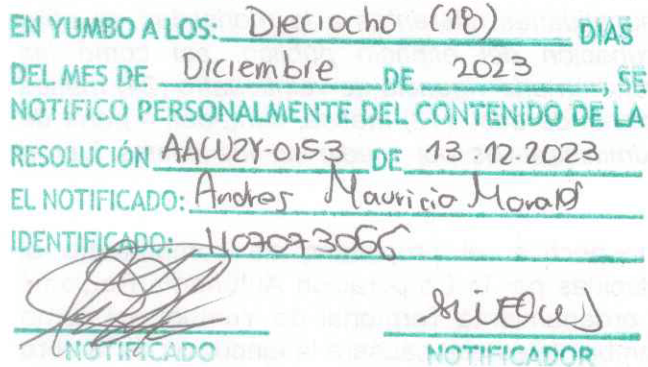 EN YUMBO A LOS: Dieciocho (18) DIAS
DEL MES DE Diciembre DE 2023, SE
NOTIFICO PERSONALMENTE DEL CONTENIDO DE LA
RESOLUCIÓN DE 13-12-2023
EL NOTIFICADO: Andres Mauricio Morales
IDENTIFICADO: 1107073066
NOTIFICADO NOTIFICADOR